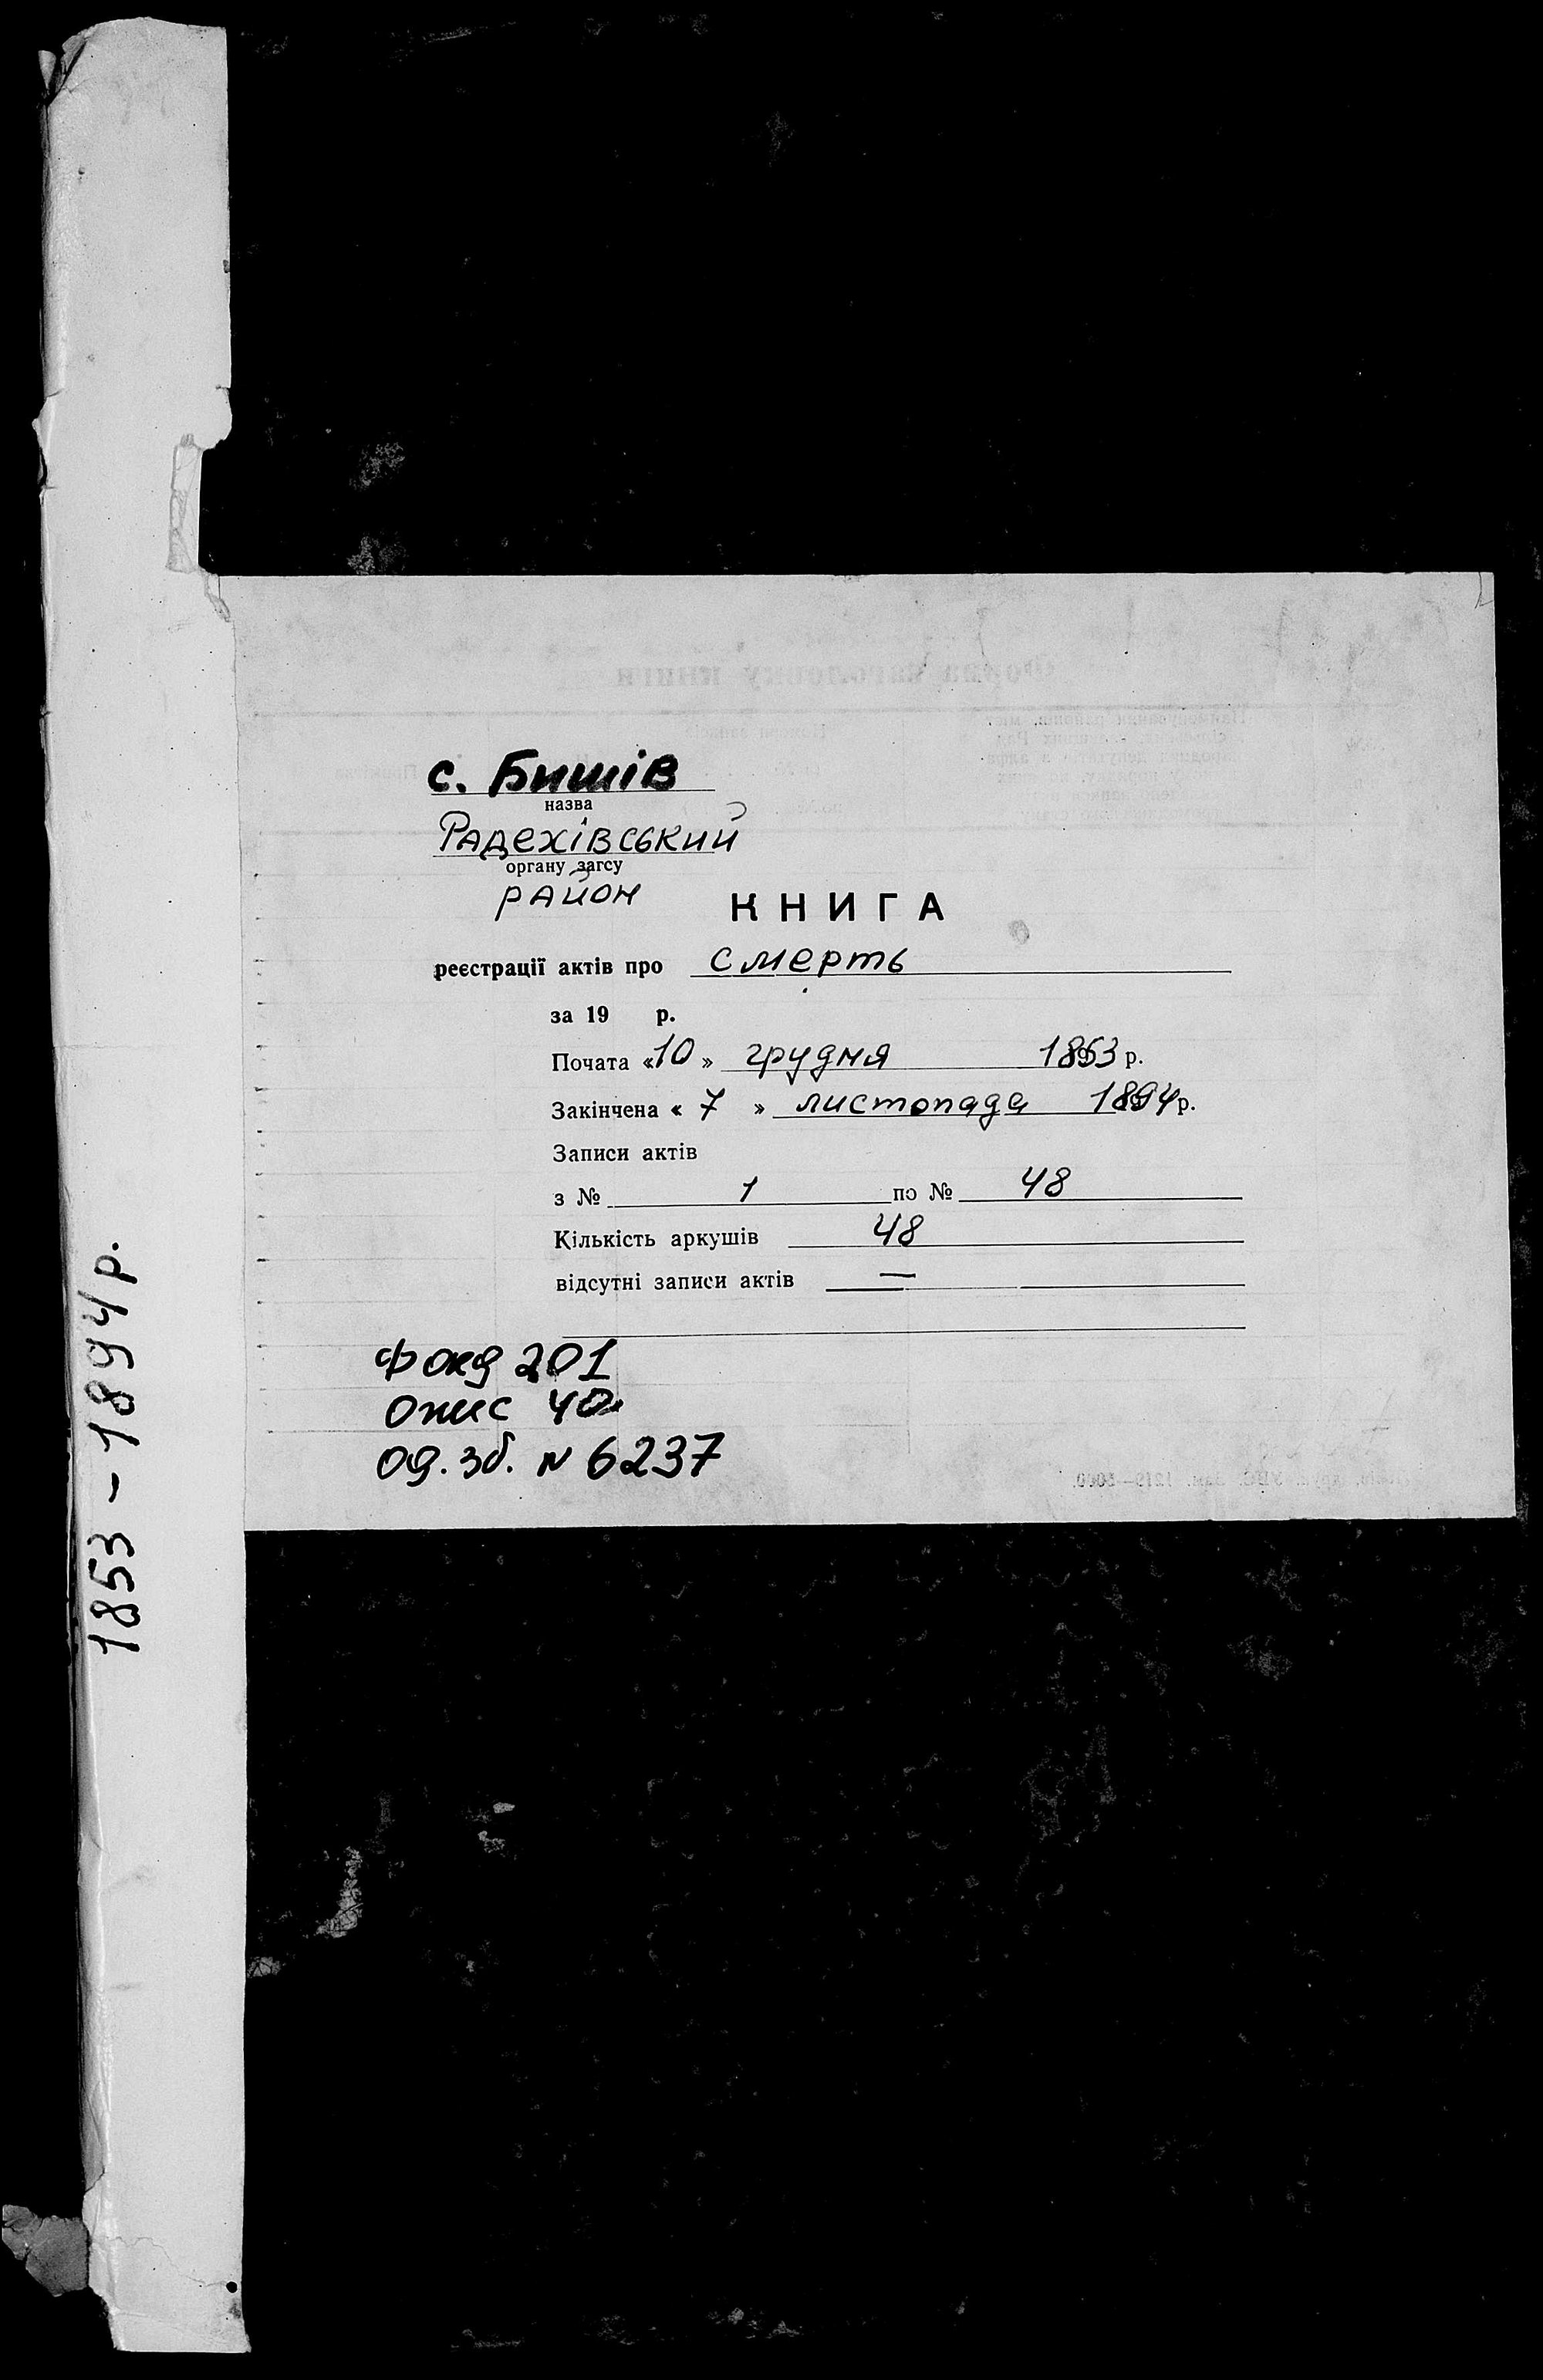 1853 – 1894 р.
с. Бишів
назва
Радехівський
органу загсу
район
КНИГА
реєстрації актів про смерть
за 19 р.
Почата «10» грудня 1853 р.
Закінчена «7» листопада 1894 р.
Записи актів
з № 1 по № 48
Кількість аркушів 48
відсутні записи актів —
Фонд 201
Опис 4а
од. зб. N 6237